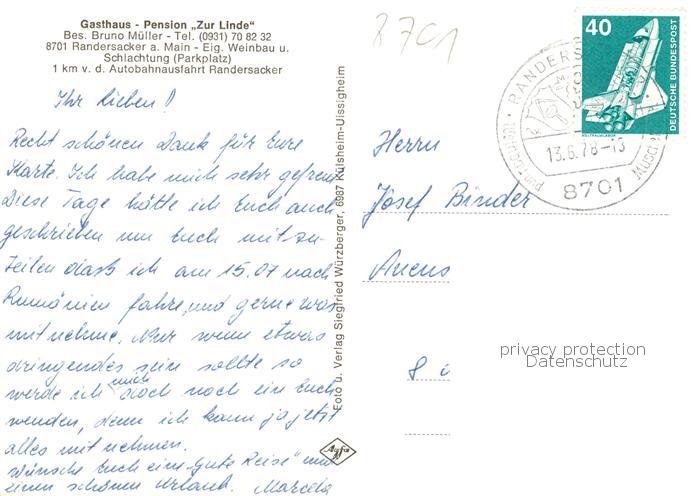 Gasthaus - Pension „Zur Linde"
Bes. Bruno Müller - Tel. (0931) 70 82 32
8701 Randersacker a. Main - Eig. Weinbau u.
Schlachtung (Parkplatz)
1 km v. d. Autobahnausfahrt Randersacker
Ihr Lieben!
Recht schönen Dank für Eure
Karte. Ich habe mich sehr gefreut
Diese Tage hätte ich Euch auch
geschrieben um Euch mitzu-
teilen daß ich am 15.07 nach
Rumänien fahre, und gerne was
mitnehme. Nur wenn etwas
dringendes sein sollte so
werde ich mich doch noch ein Euch
wenden, denn ich kann ja jetzt
alles mitnehmen.
Wünsche Euch eine "Gute Reise" und
einen schönen Urlaub. Marcela
Foto u. Verlag Siegfried Würzberger, 6987 Külsheim-Uissigheim
Agfa
8701
40
DEUTSCHE BUNDESPOST
WELTRAUMLABOR
RANDERS
13.6.78-13
8701
Herrn
Josef Binder
8
privacy protection
Datenschutz